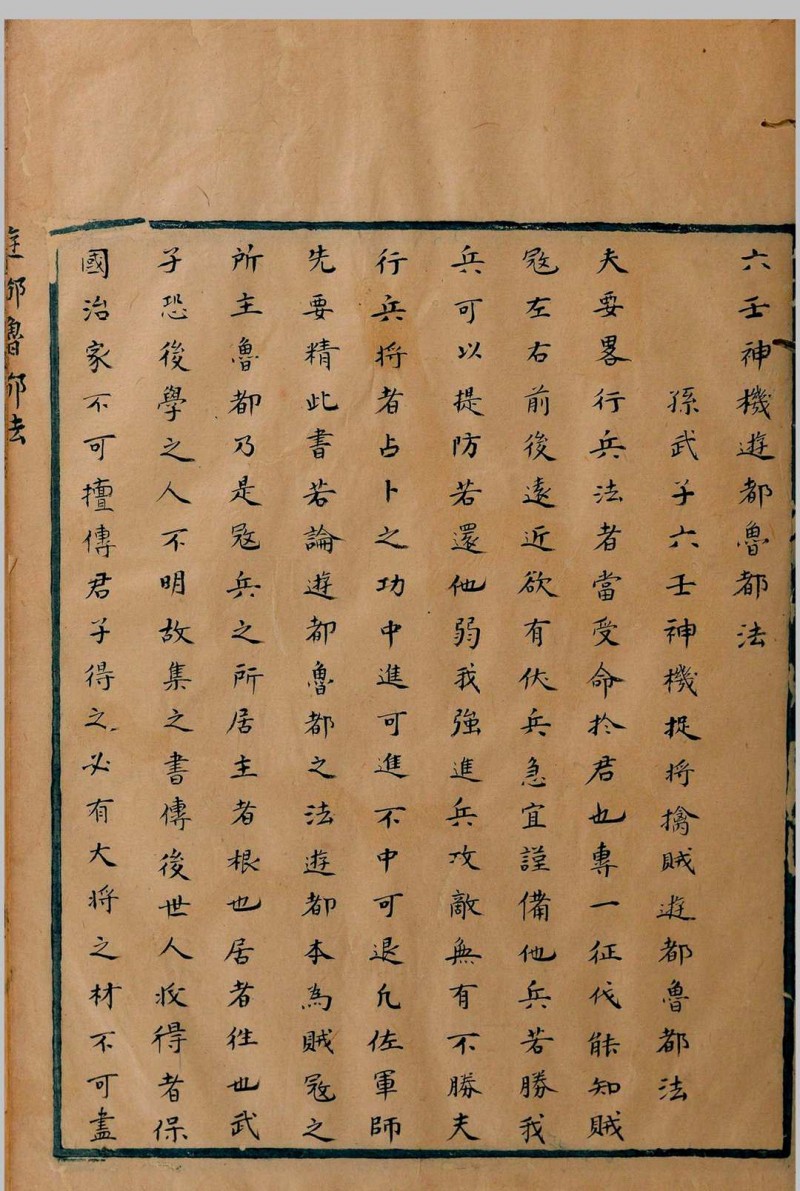 六壬神機遊都魯都法
孫武子六壬神機捉將擒賊遊都魯都法
夫要畧行兵法者當受命於君也專一征伐能知賊
宼左右前後遠近欲有伏兵急宜謹備他兵若勝我
兵可以提防若還他弱我強進兵攻敵無有不勝夫
行兵將者占卜之功中進可進不中可退凢佐軍師
先要精此書若論遊都魯都之法遊都本為賊宼之
所主魯都乃是宼兵之所居主者根也居者徃也武
子恐後學之人不明故集之書傳後世人收得者保
國治家不可擅傳君子得之必有大将之材不可盡
遊都魯都法